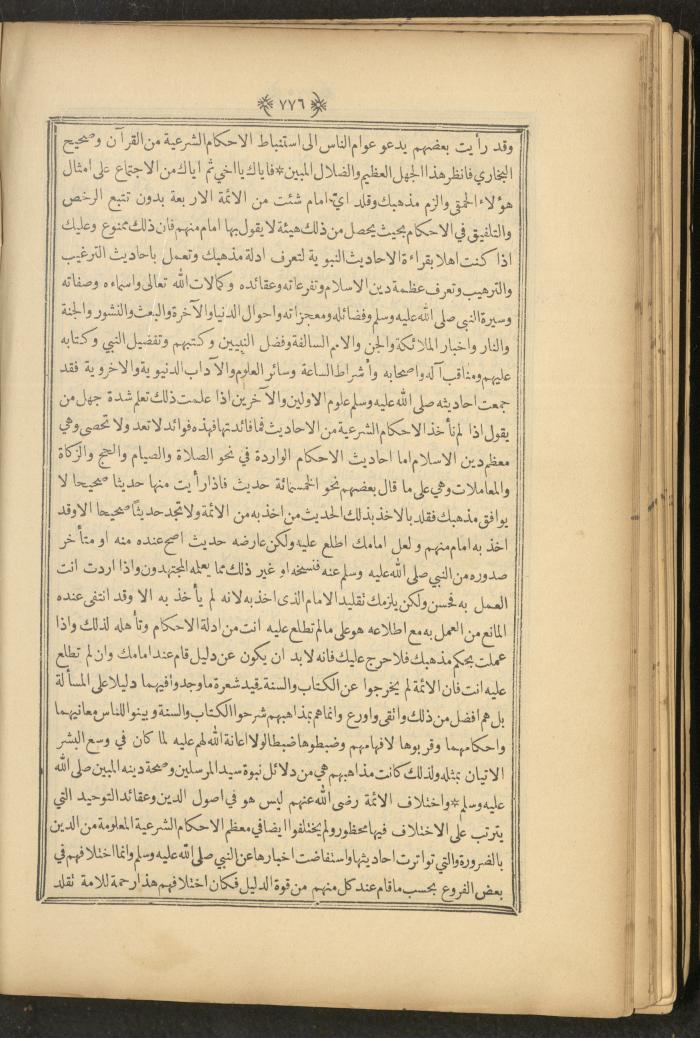 ٧٧٦
وقد رأيت بعضهم يدعو عوام الناس الى استنباط الاحكام الشرعية من القرآن وصحيح
البخاري فانظر هذا الجهل العظيم والضلال المبين * فاياك يااخي ثم اياك من الاجتماع على امثال
هؤلاء الحمقى والزم مذهبك وقلد اي امام شئت من الائمة الاربعة بدون تتبع الرخص
والتلفيق في الاحكام بحيث يحصل من ذلك هيئة لا يقول بها امام منهم فان ذلك ممنوع وعليك
اذا كنت اهلا بقراءة الاحاديث النبوية لتعرف ادلة مذهبك وتعمل باحاديث الترغيب
والترهيب وتعرف عظمة دين الاسلام وتفرعاته وعقائده وكمالات الله تعالى واسماءه وصفاته
وسيرة النبي صلى الله عليه وسلم وفضائله ومعجزاته واحوال الدنيا والآخرة والبعث والنشور والجنة
والنار واخبار الملائكة والجن والامم السالفة وفضل النبيين وكتبهم وتفضيل النبي وكتابه
عليهم ومناقب آله واصحابه وأشراط الساعة وسائر العلوم والآداب الدنيوية والاخروية فقد
جمعت احاديثه صلى الله عليه وسلم علوم الاولين والآخرين اذا علمت ذلك تعلم شدة جهل من
يقول اذا لم نأخذ الاحكام الشرعية من الاحاديث فما فائدتها فهذه فوائد لا تعد ولا تحصى وهي
معظم دين الاسلام اما احاديث الاحكام الواردة في نحو الصلاة والصيام والحج والزكاة
والمعاملات وهي على ما قال بعضهم نحو الخمسمائة حديث فاذا رأيت منها حديثا صحيحا لا
يوافق مذهبك فقلد بالاخذ بذلك الحديث من اخذ به من الائمة ولا تجد حديثاً صحيحا الا وقد
اخذ به امام منهم ولعل امامك اطلع عليه ولكن عارضه حديث اصح عنده منه او متأخر
صدوره من النبي صلى الله عليه وسلم عنه فنسخه او غير ذلك مما يعلمه المجتهدون واذا اردت انت
العمل به فحسن ولكن يلزمك تقليد الامام الذى اخذ به لانه لم يأخذ به الا وقد انتفى عنده
المانع من العمل به مع اطلاعه هو على مالم تطلع عليه انت من ادلة الاحكام وتأهله لذلك واذا
عملت بحكم مذهبك فلا حرج عليك فانه لا بد ان يكون عن دليل قام عند امامك وان لم تطلع
عليه انت فان الائمة لم يخرجوا عن الكتاب والسنة قيد شعرة ما وجدوا فيهما دليلا على المسألة
بل هم افضل من ذلك واتقى واورع وانما هم بمذاهبهم شرحوا الكتاب والسنة وبينوا للناس معانيهما
واحكامهما وقربوها لافهامهم وضبطوها ضبطا لولا اعانة الله لهم عليه لما كان في وسع البشر
الاتيان بمثله ولذلك كانت مذاهبهم هي من دلائل نبوة سيد المرسلين وصحة دينه المبين صلى الله
عليه وسلم * واختلاف الائمة رضى الله عنهم ليس هو في اصول الدين وعقائد التوحيد التي
يترتب على الاختلاف فيها محظور ولم يختلفوا ايضا في معظم الاحكام الشرعية المعلومة من الدين
بالضرورة والتي تواترت احاديثها واستفاضت اخبارها عن النبي صلى الله عليه وسلم وانما اختلافهم في
بعض الفروع بحسب ما قام عند كل منهم من قوة الدليل فكان اختلافهم هذا رحمة للامة تقلد